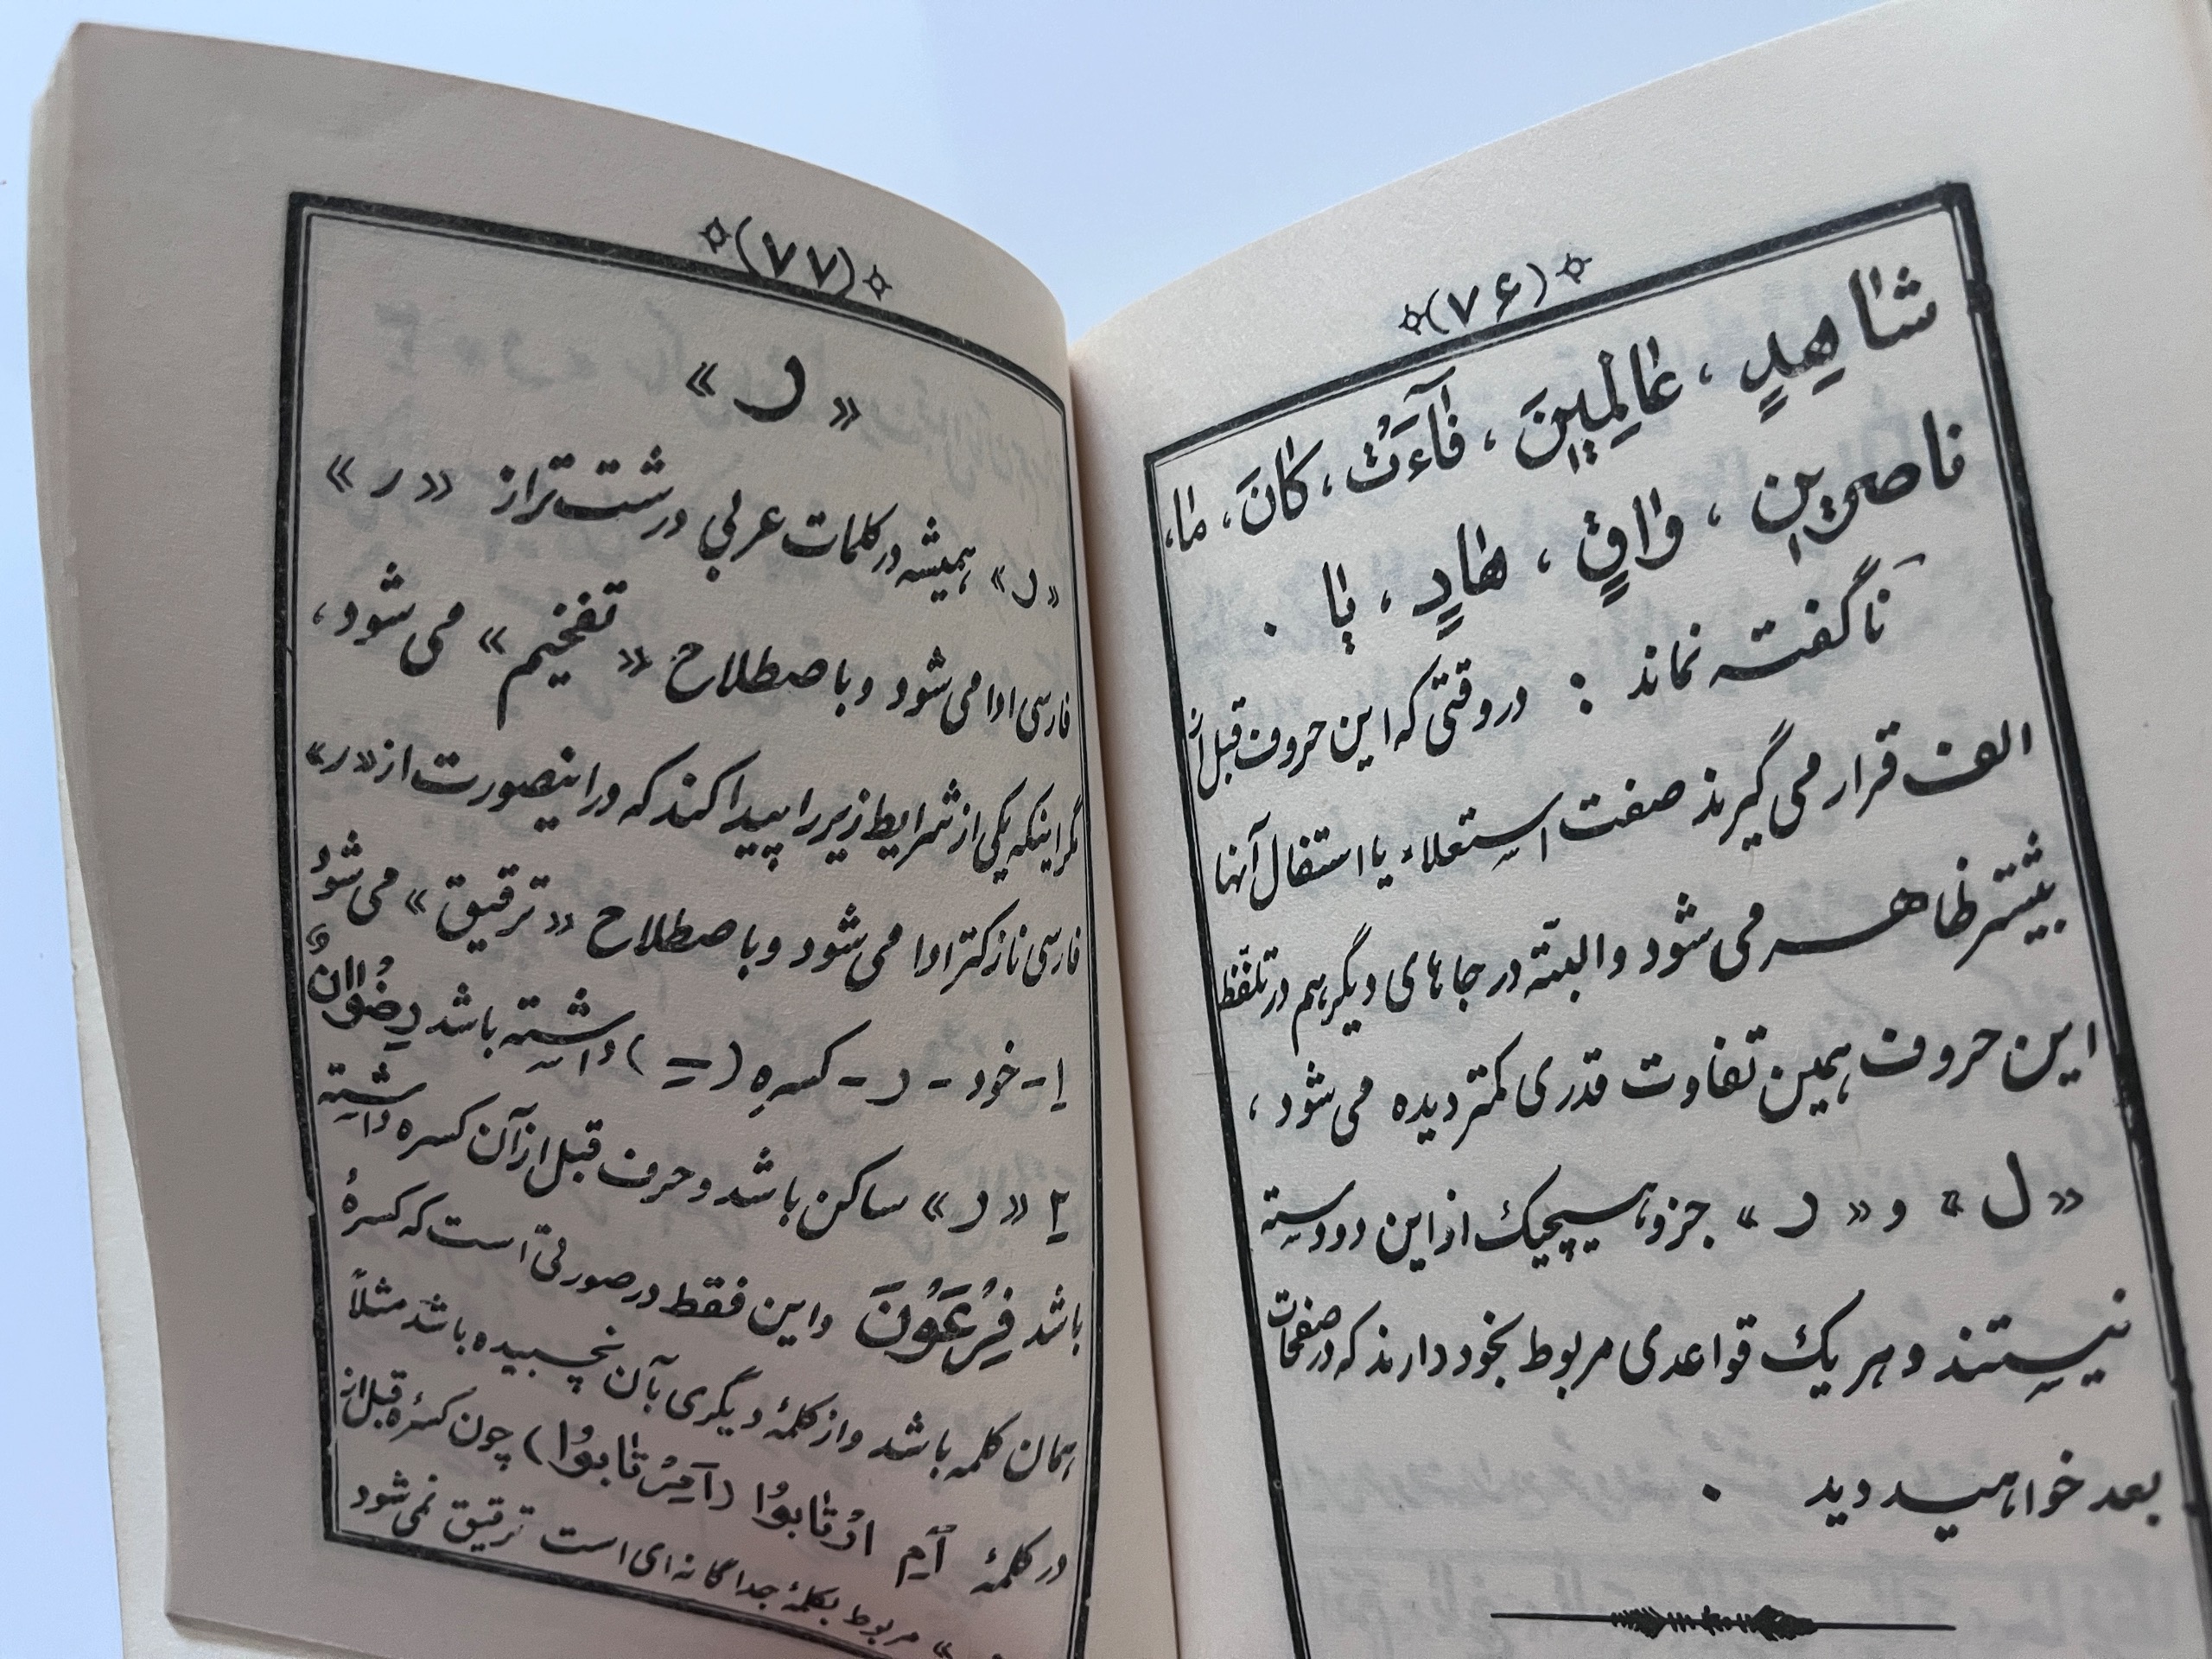 (۷۶)
شاهِدٍ ، عالِمِينَ ، فآءَتْ ، كانَ ، ما،
ناصِرِينِ ، واقٍ ، هادٍ ، يا .
ناگفته نماند : در وقتی که این حروف قبل از
الف قرار می گیرند صفت استعلاء یا استفال آنها
بیشتر ظاهر می شود و البتّه در جاهای دیگر هم در تلفّظ
این حروف همین تفاوت قدری کمتر دیده می شود ،
« ل » و « ر » جزو هیچیک از این دو دسته
نیستند و هر یک قواعدی مربوط بخود دارند که در صفحات
بعد خواهید دید .
(۷۷)
« ر »
« ر » همیشه در کلمات عربی درشت تر از « ر »
فارسی ادا می شود و باصطلاح « تفخیم » می شود ،
مگر اینکه یکی از شرایط زیر را پیدا کند که در اینصورت از « ر »
فارسی نازکتر ادا می شود و باصطلاح « ترقیق » می شود
۱ - خود - ر - کسره ( ــِـ ) داشته باشد رِضْوانٌ
۲ « ر » ساکن باشد و حرف قبل از آن کسره داشته
باشد فِرْعَوْنَ و این فقط در صورتی است که کسرهٔ
همان کلمه باشد و از کلمهٔ دیگری بآن نچسبیده باشد مثلاً
در کلمهٔ اَمِ ارْتابوُا (اَمِرْتابوُا) چون کسرهٔ قبل از
» مربوط بکلمهٔ جداگانه ای است ترقیق نمی شود